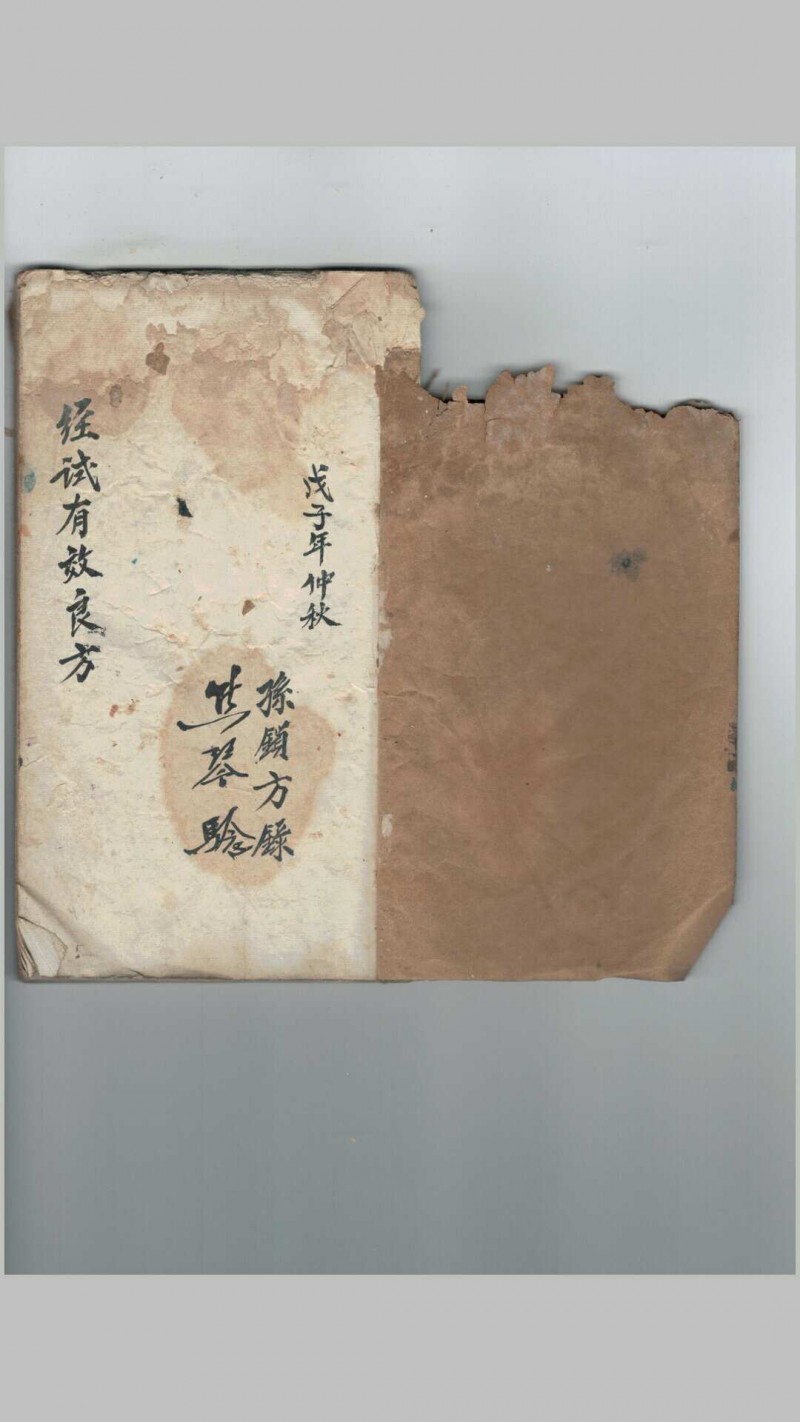 戊子年仲秋
孫鎖方錄
焦琴騐
经试有效良方